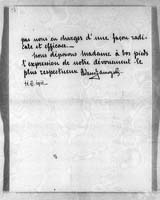 par nous en charger d'une façon radi-
cale et efficace.
Nous déposons Madame à vos pieds
l'expression de notre dévouement le
plus respectueux